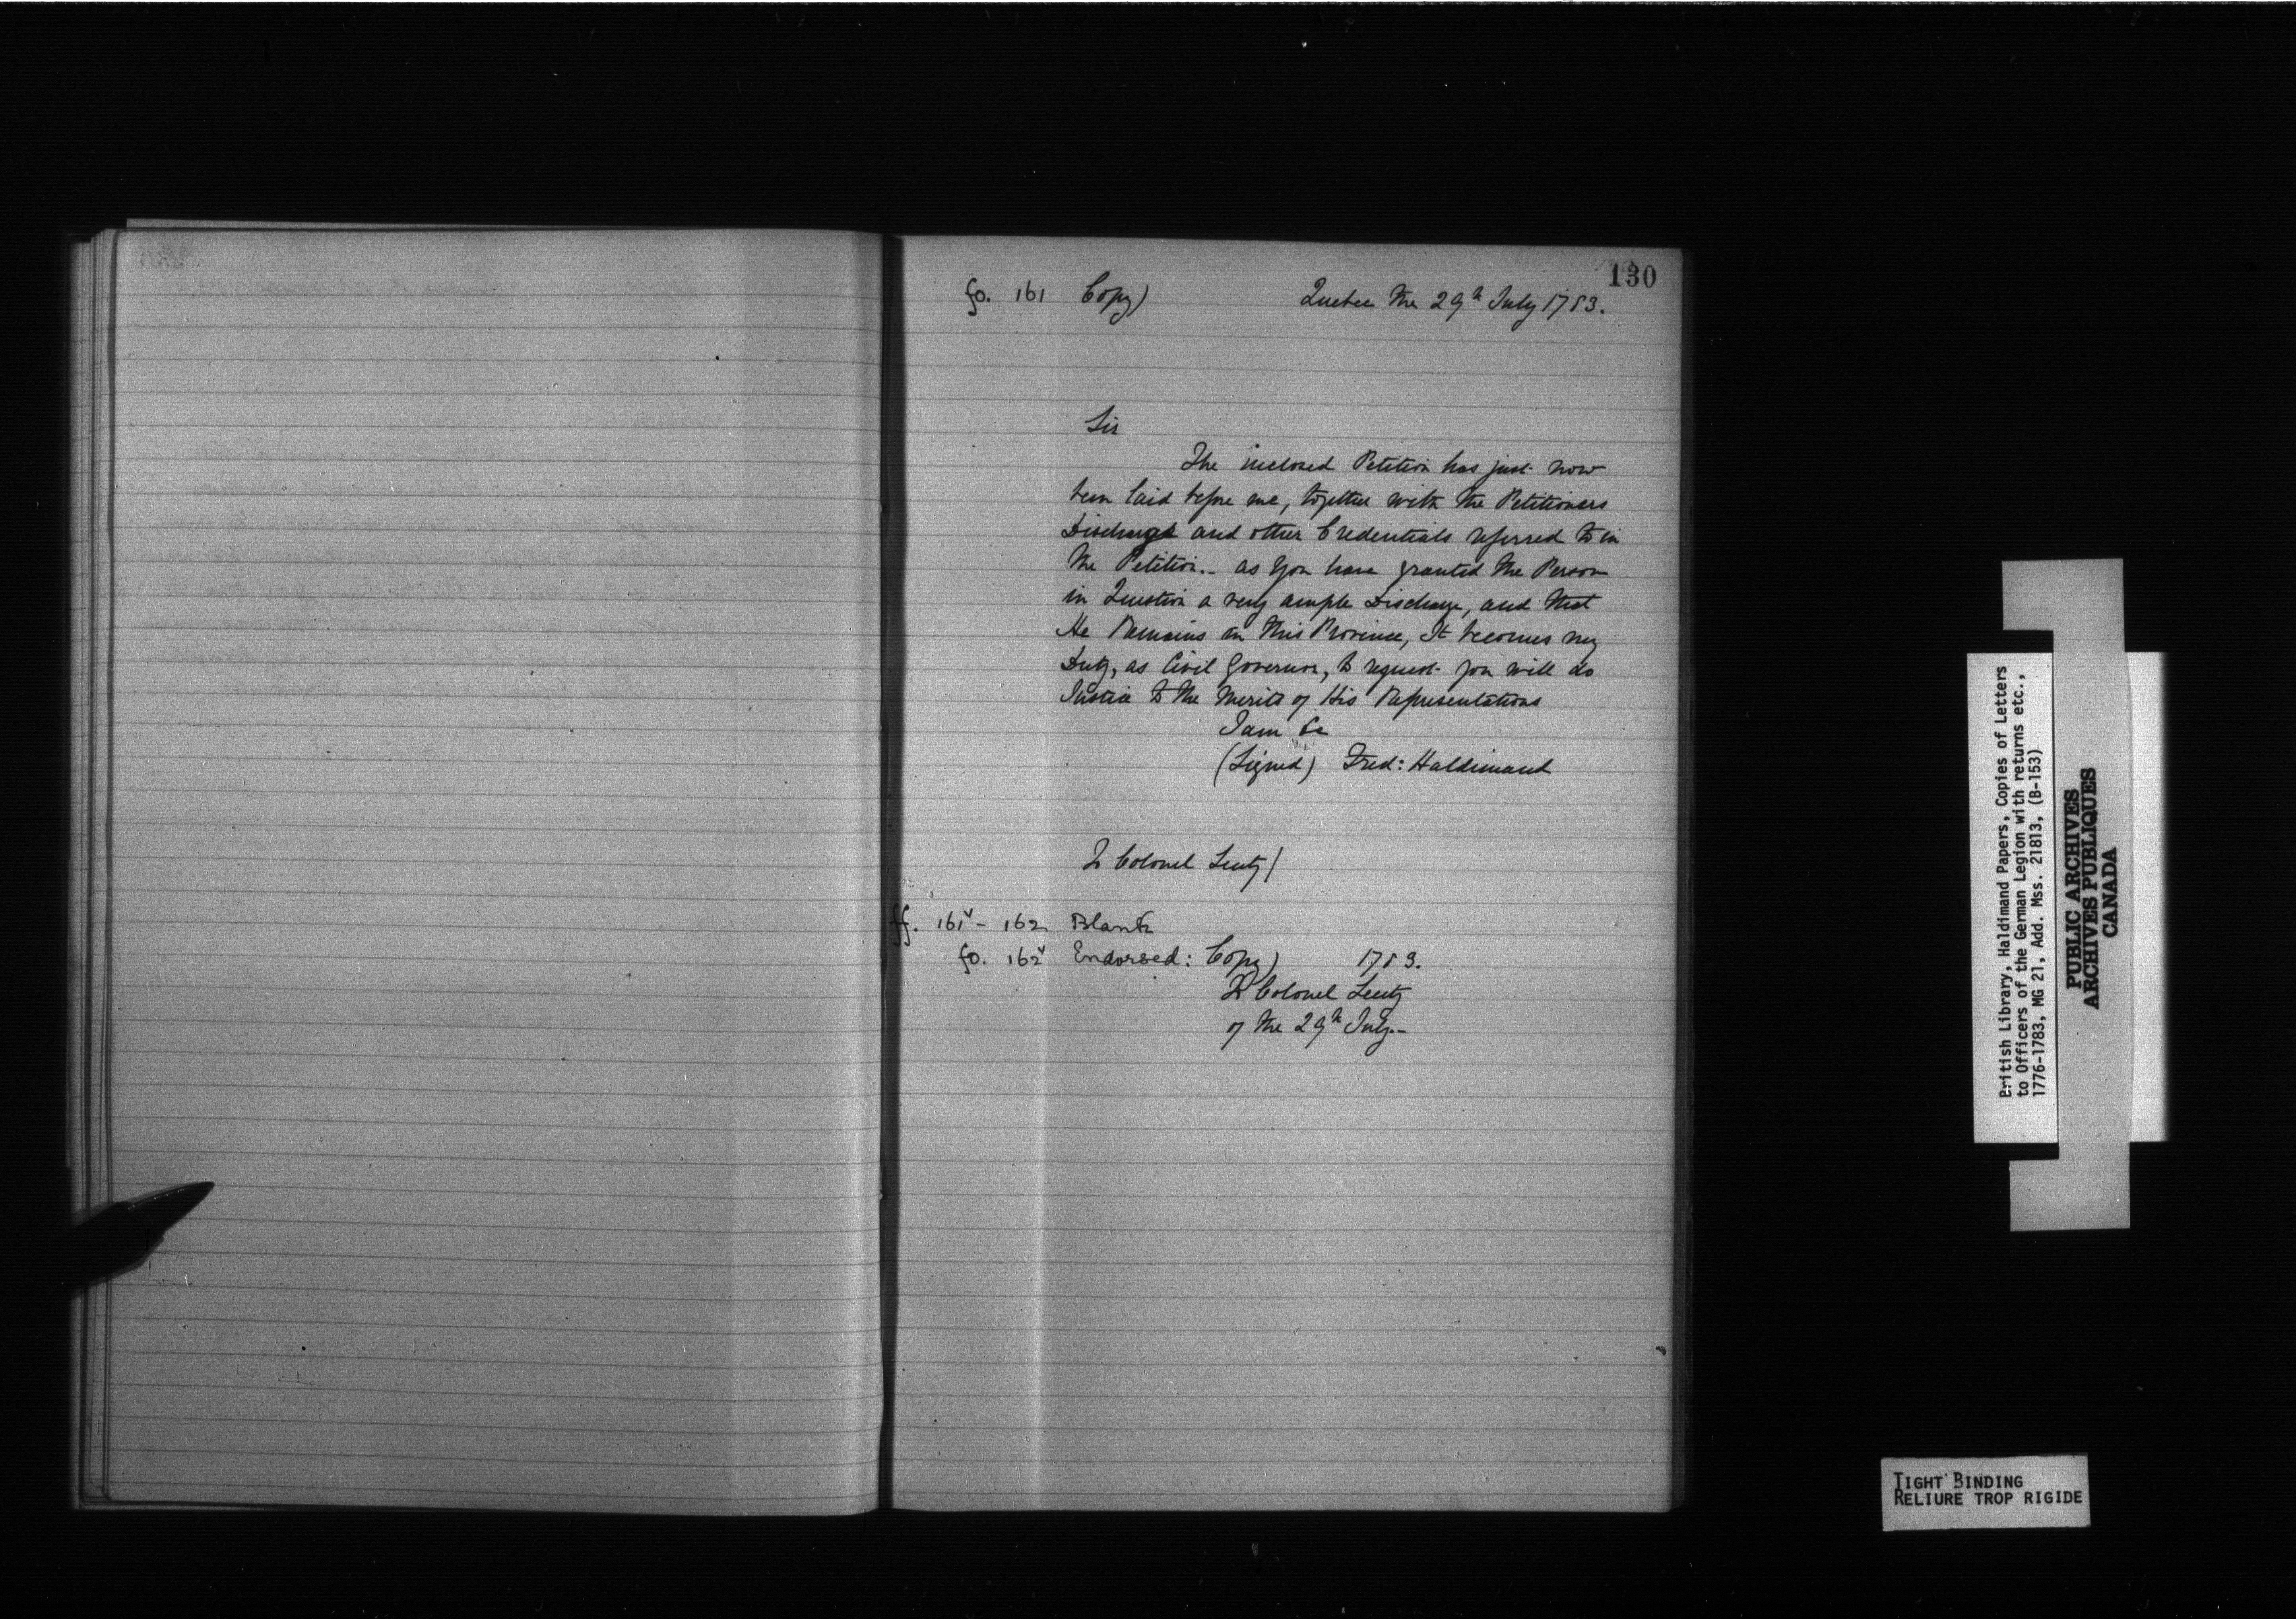 130
fo. 161 Copy) Quebec the 29th July 1783.
Sir
The inclosed Petition has just now
been laid before me, together with the Petitioners
Discharge and other Credentials referred to in
the Petition.- as You have granted the Person
in Question a very ample Discharge, and that
He Remains in this Province, It becomes my
Duty, as Civil Governor, to request you will do
Justice to the Merits of His Representations
I am &c
(Signed) Fred: Haldimand
To Colonel Lentz)
ff. 161v - 162 Blank
fo. 162v Endorsed: Copy) 1783.
To Colonel Lentz
of the 29th July.-
British Library, Haldimand Papers, Copies of Letters
to Officers of the German Legion with returns etc.,
1776-1783, MG 21, Add. Mss. 21813, (B-153)
PUBLIC ARCHIVES
ARCHIVES PUBLIQUES
CANADA
TIGHT BINDING
RELIURE TROP RIGIDE